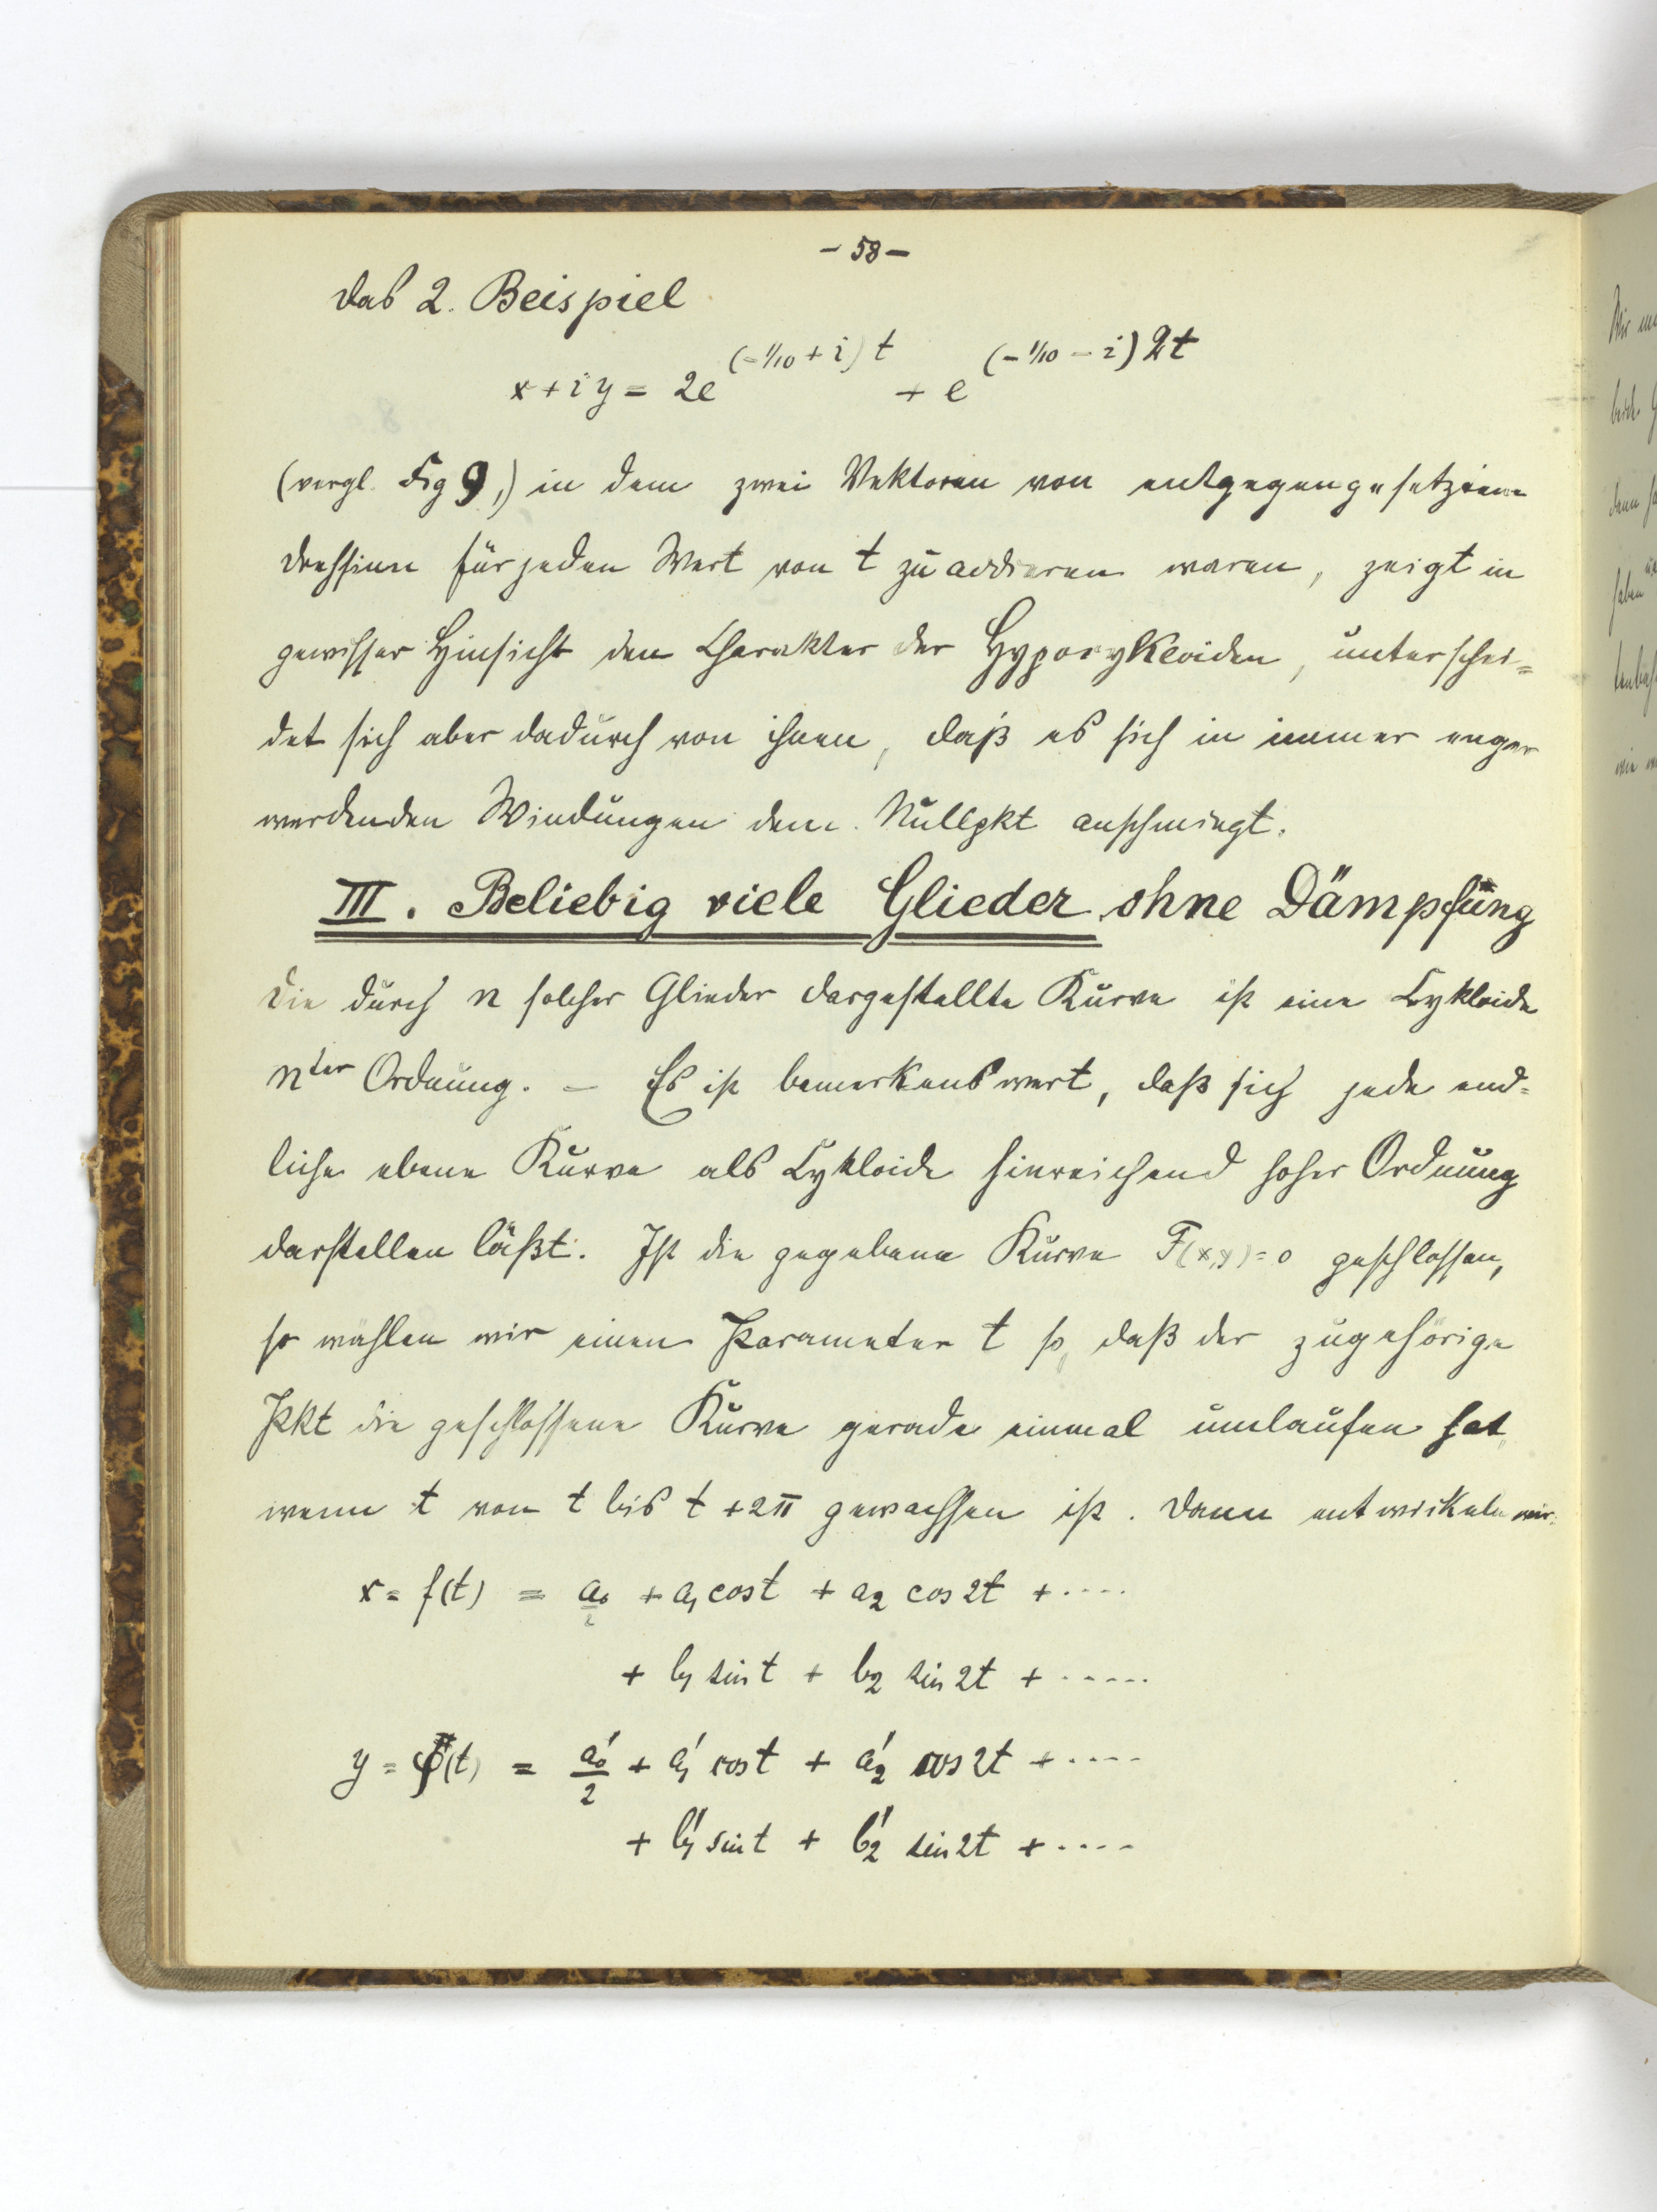 - 58 -
Das 2. Beispiel
x + iy = 2e^{(-1/10 + i) t} + e^{(-1/10 - i) 2t}
(vergl. Fig 9,) in dem zwei Vektoren von entgegengesetztem
Drehsinn für jeden Wert von t zu addieren waren, zeigt in
gewisser Hinsicht den Charakter der Hypocykloiden, unterschei=
det sich aber dadurch von ihnen, daß es sich in immer enger
werdenden Windungen dem Nullpkt anschmiegt.
III. Beliebig viele Glieder ohne Dämpfung
Die durch n solcher Glieder dargestellte Kurve ist eine Cykloide
nter Ordnung. – Es ist bemerkenswert, daß sich jede end=
liche ebene Kurve als Cykloide hinreichend hoher Ordnung
darstellen läßt. Ist die gegebene Kurve F(x,y)=0 geschlossen,
so wählen wir einen Parameter t so, daß der zugehörige
Pkt die geschlossene Kurve gerade einmal umlaufen hat,
wenn t von t bis t + 2π gewachsen ist. Dann entwickeln wir:
x = f(t) = a₀/2 + a₁ cos t + a₂ cos 2t + ....
+ b₁ sin t + b₂ sin 2t + ......
y = φ(t) = a₀'/2 + a₁' cos t + a₂' cos 2t + ....
+ b₁' sin t + b₂' sin 2t + ....